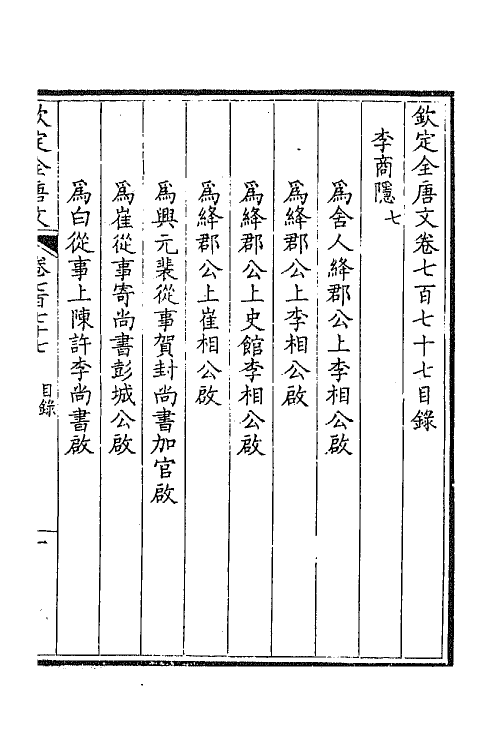 欽定全唐文卷七百七十七目錄
李商隱七
為舍人絳郡公上李相公啟
為絳郡公上李相公啟
為絳郡公上史館李相公啟
為絳郡公上崔相公啟
為興元裴從事賀封尚書加官啟
為崔從事寄尚書彭城公啟
為白從事上陳許李尚書啟
欽定全唐文 卷七百七十七 目錄 一